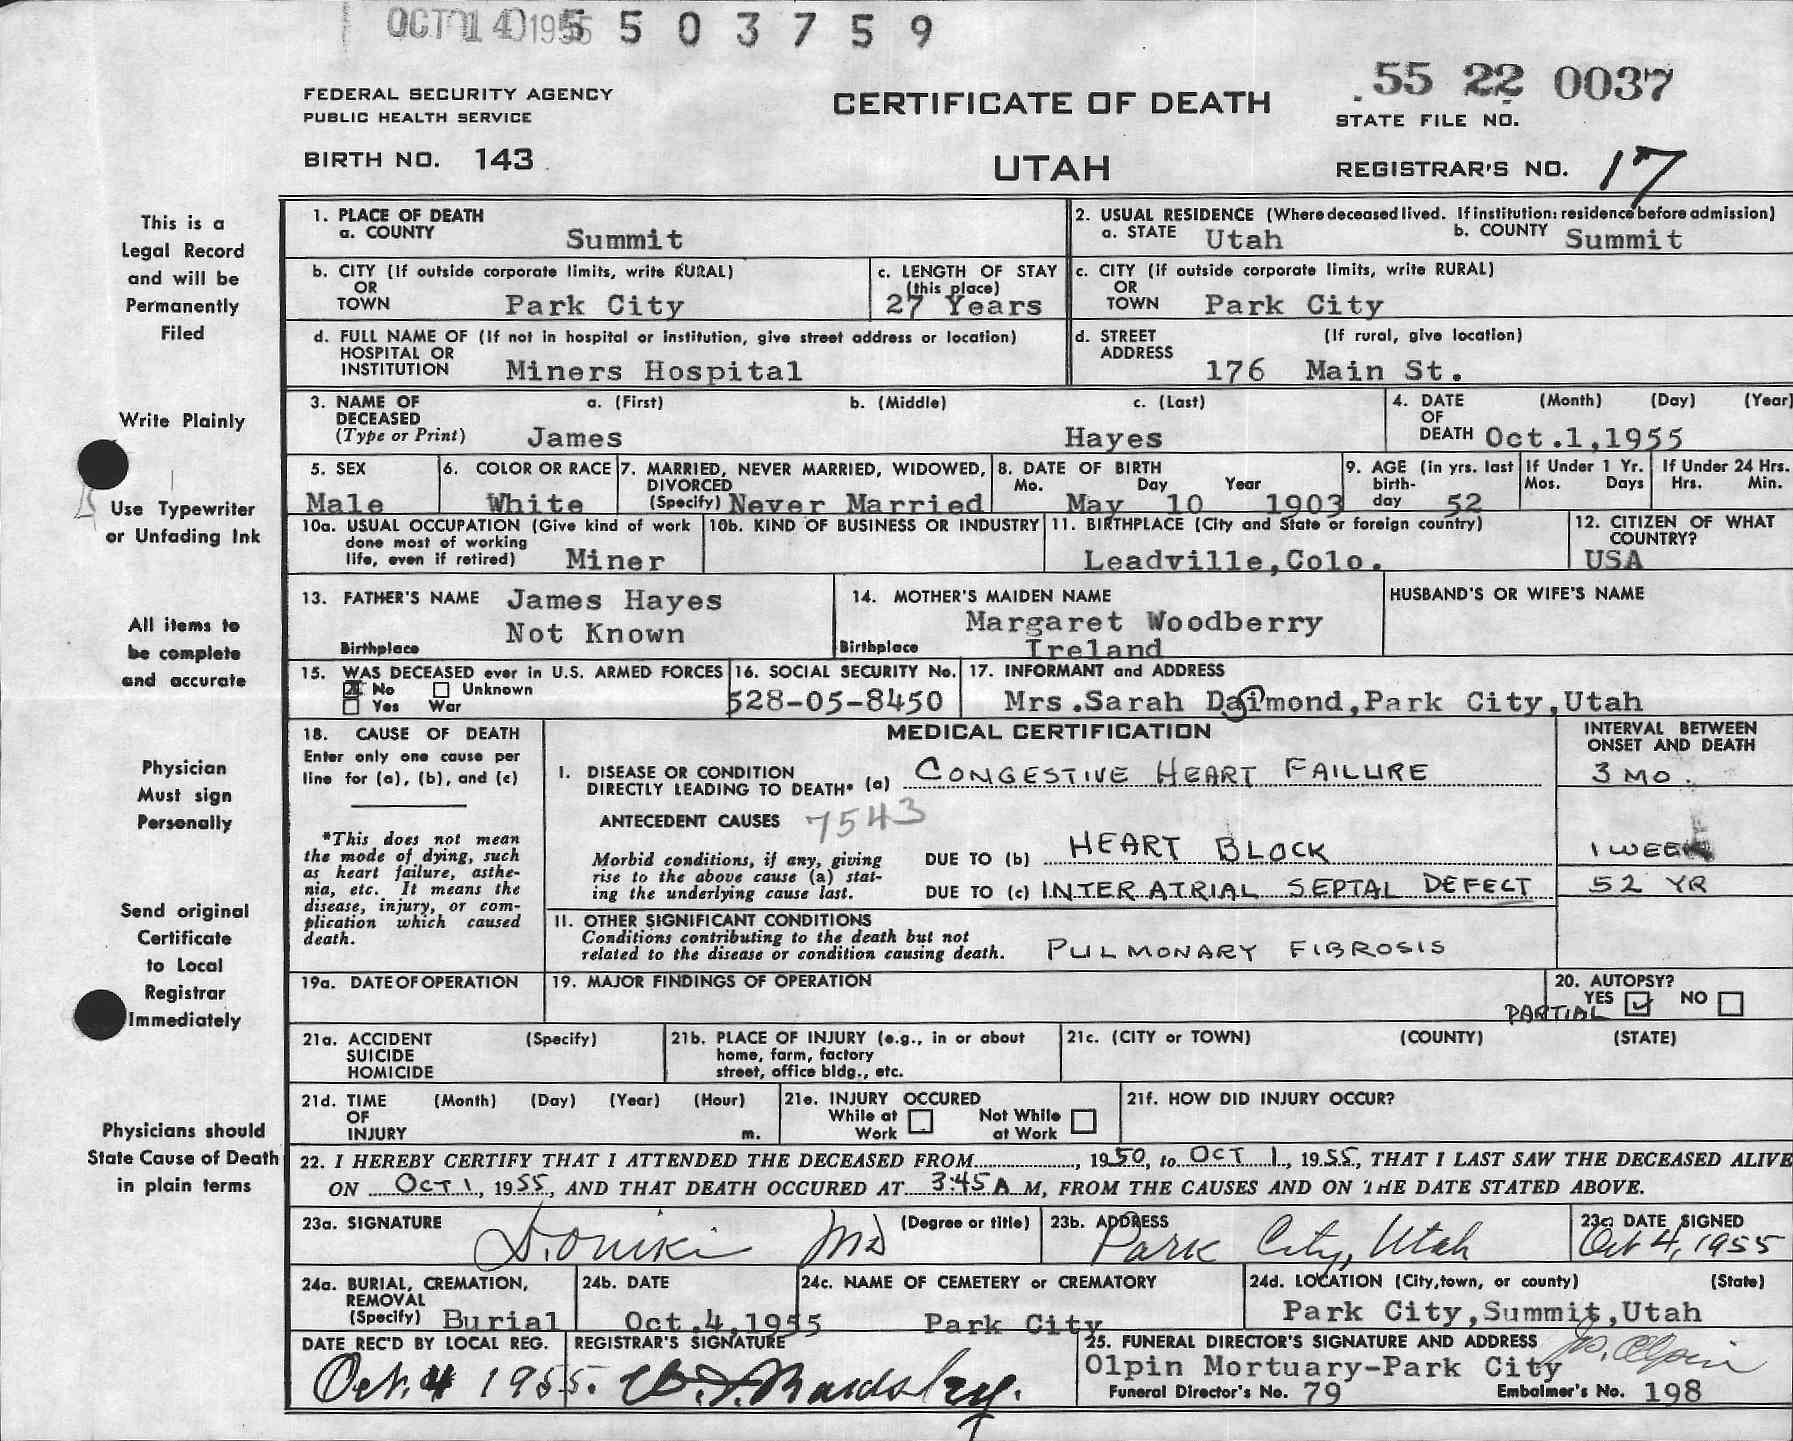 OCT 14 1955 5 5 0 3 7 5 9
55 22 0037
FEDERAL SECURITY AGENCY
PUBLIC HEALTH SERVICE
CERTIFICATE OF DEATH
STATE FILE NO.
BIRTH NO. 143
UTAH
REGISTRAR'S NO. 17
This is a
Legal Record
and will be
Permanently
Filed
Write Plainly
Use Typewriter
or Unfading Ink
All items to
be complete
and accurate
Physician
Must sign
Personally
Send original
Certificate
to Local
Registrar
Immediately
Physicians should
State Cause of Death
in plain terms
1. PLACE OF DEATH
a. COUNTY Summit
2. USUAL RESIDENCE (Where deceased lived. If institution: residence before admission)
a. STATE Utah b. COUNTY Summit
b. CITY (If outside corporate limits, write RURAL)
OR
TOWN Park City
c. LENGTH OF STAY
(this place)
27 Years
c. CITY (if outside corporate limits, write RURAL)
OR
TOWN Park City
d. FULL NAME OF (If not in hospital or institution, give street address or location)
HOSPITAL OR
INSTITUTION Miners Hospital
d. STREET (If rural, give location)
ADDRESS
176 Main St.
3. NAME OF a. (First) b. (Middle) c. (Last)
DECEASED
(Type or Print) James Hayes
4. DATE (Month) (Day) (Year)
OF
DEATH Oct.1,1955
5. SEX
Male
6. COLOR OR RACE
White
7. MARRIED, NEVER MARRIED, WIDOWED,
DIVORCED
(Specify) Never Married
8. DATE OF BIRTH
Mo. Day Year
May 10 1903
9. AGE (in yrs. last
birth-
day 52
If Under 1 Yr.
Mos. Days
If Under 24 Hrs.
Hrs. Min.
10a. USUAL OCCUPATION (Give kind of work
done most of working
life, even if retired) Miner
10b. KIND OF BUSINESS OR INDUSTRY
11. BIRTHPLACE (City and State or foreign country)
Leadville,Colo.
12. CITIZEN OF WHAT
COUNTRY?
USA
13. FATHER'S NAME James Hayes
Not Known
Birthplace
14. MOTHER'S MAIDEN NAME
Margaret Woodberry
Birthplace Ireland
HUSBAND'S OR WIFE'S NAME
15. WAS DECEASED ever in U.S. ARMED FORCES
No Unknown
Yes War
16. SOCIAL SECURITY No.
528-05-8450
17. INFORMANT and ADDRESS
Mrs.Sarah Daimond,Park City,Utah
18. CAUSE OF DEATH
Enter only one cause per
line for (a), (b), and (c)
*This does not mean
the mode of dying, such
as heart failure, asthe-
nia, etc. It means the
disease, injury, or com-
plication which caused
death.
MEDICAL CERTIFICATION
INTERVAL BETWEEN
ONSET AND DEATH
I. DISEASE OR CONDITION
DIRECTLY LEADING TO DEATH* (a) CONGESTIVE HEART FAILURE 3 MO.
ANTECEDENT CAUSES 7543
Morbid conditions, if any, giving
rise to the above cause (a) stat-
ing the underlying cause last.
DUE TO (b) HEART BLOCK 1 WEEK
DUE TO (c) INTER ATRIAL SEPTAL DEFECT 52 YR
II. OTHER SIGNIFICANT CONDITIONS
Conditions contributing to the death but not
related to the disease or condition causing death. PULMONARY FIBROSIS
19a. DATE OF OPERATION
19. MAJOR FINDINGS OF OPERATION
20. AUTOPSY?
YES NO
PARTIAL
21a. ACCIDENT (Specify)
SUICIDE
HOMICIDE
21b. PLACE OF INJURY (e.g., in or about
home, farm, factory
street, office bldg., etc.
21c. (CITY or TOWN) (COUNTY) (STATE)
21d. TIME (Month) (Day) (Year) (Hour)
OF
INJURY m.
21e. INJURY OCCURED
While at Not While
Work at Work
21f. HOW DID INJURY OCCUR?
22. I HEREBY CERTIFY THAT I ATTENDED THE DECEASED FROM, 1950, to OCT 1, 1955, THAT I LAST SAW THE DECEASED ALIVE
ON OCT 1, 1955, AND THAT DEATH OCCURED AT 3:45 A M, FROM THE CAUSES AND ON THE DATE STATED ABOVE.
23a. SIGNATURE (Degree or title)
MD
23b. ADDRESS
Park City, Utah
23c. DATE SIGNED
Oct 4, 1955
24a. BURIAL, CREMATION,
REMOVAL
(Specify) Burial
24b. DATE
Oct.4,1955
24c. NAME OF CEMETERY or CREMATORY
Park City
24d. LOCATION (City,town, or county) (State)
Park City,Summit,Utah
DATE REC'D BY LOCAL REG.
Oct. 4 1955.
REGISTRAR'S SIGNATURE
25. FUNERAL DIRECTOR'S SIGNATURE AND ADDRESS
Olpin Mortuary-Park City
Funeral Director's No. 79 Embalmer's No. 198